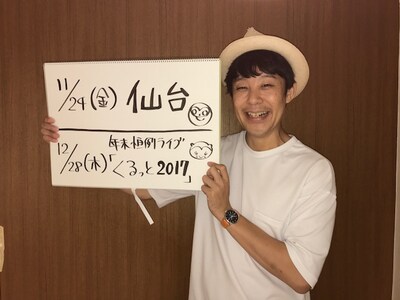 11/24(金) 仙台
年末恒例ライブ
12/28(木)「くるっと2017」